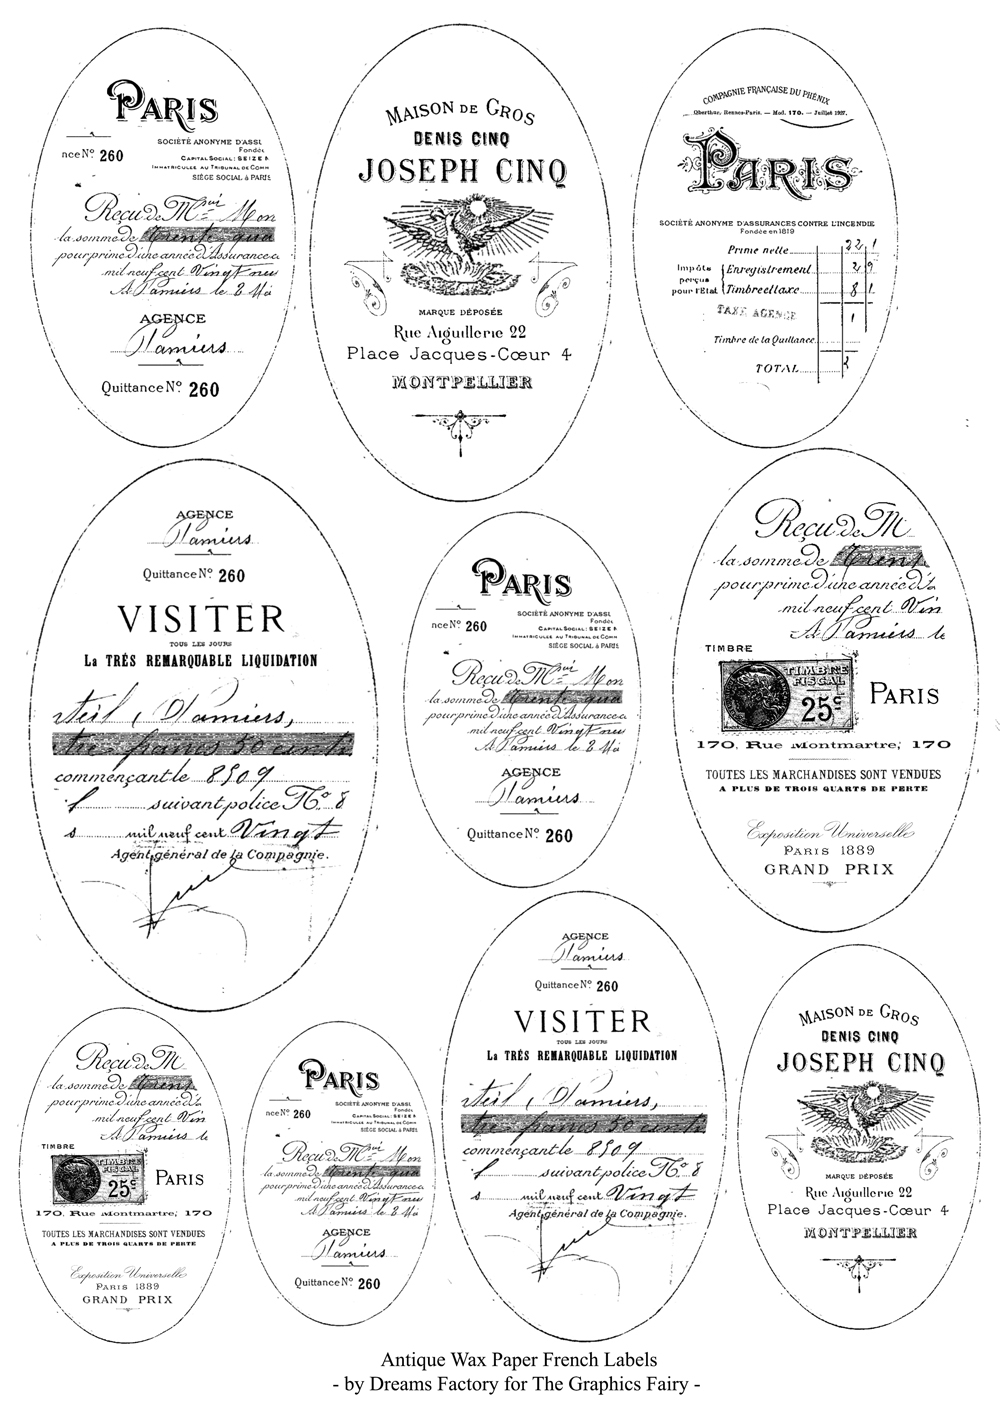 PARIS
SOCIÉTÉ ANONYME D'ASSU
Fondée
nce No. 260
CAPITAL SOCIAL: SEIZE
IMMATRICULEE AU TRIBUNAL DE COMM
SIÈGE SOCIAL à PARIS
Reçu de M
la somme de Trente
pour prime d'une année d'Assurance
mil neuf cent Vingt neu
A Pamiers le 2 Mai
AGENCE
Pamiers
Quittance No. 260
MAISON DE GROS
DENIS CINQ
JOSEPH CINQ
MARQUE DÉPOSÉE
Rue Aiguillerie 22
Place Jacques-Cœur 4
MONTPELLIER
COMPAGNIE FRANÇAISE DU PHÉNIX
Oberthur, Rennes-Paris. — Mod. 170. — Juillet 1927.
PARIS
SOCIÉTÉ ANONYME D'ASSURANCES CONTRE L'INCENDIE
Fondée en 1819
Prime nette 22 1
Impôts perçus pour l'Etat { Enregistrement 2 9
Timbre et taxe 8 1
TAXE AGENCE 1
Timbre de la Quittance
TOTAL
AGENCE
Pamiers
Quittance No. 260
VISITER
TOUS LES JOURS
La TRÉS REMARQUABLE LIQUIDATION
Pamiers,
francs 50 cents
commençant le 8509
suivant police No. 8
s mil neuf cent Vingt
Agent général de la Compagnie.
PARIS
SOCIÉTÉ ANONYME D'ASSU
Fondée
nce No. 260
CAPITAL SOCIAL: SEIZE
IMMATRICULEE AU TRIBUNAL DE COMM
SIÈGE SOCIAL à PARIS
Reçu de M
la somme de Trente
pour prime d'une année d'Assurance
mil neuf cent Vingt neu
A Pamiers le 2 Mai
AGENCE
Pamiers
Quittance No. 260
Reçu de M
la somme de Trent
pour prime d'une année d'A
mil neuf cent Vin
A Pamiers le
TIMBRE
TIMBRE FISCAL
25c
PARIS
170, Rue Montmartre, 170
TOUTES LES MARCHANDISES SONT VENDUES
A PLUS DE TROIS QUARTS DE PERTE
Exposition Universelle
PARIS 1889
GRAND PRIX
Reçu de M
la somme de Trent
pour prime d'une année d'A
mil neuf cent Vin
A Pamiers le
TIMBRE
TIMBRE FISCAL
25c
PARIS
170, Rue Montmartre, 170
TOUTES LES MARCHANDISES SONT VENDUES
A PLUS DE TROIS QUARTS DE PERTE
Exposition Universelle
PARIS 1889
GRAND PRIX
PARIS
SOCIÉTÉ ANONYME D'ASSU
Fondée
nce No. 260
CAPITAL SOCIAL: SEIZE
IMMATRICULEE AU TRIBUNAL DE COMM
SIÈGE SOCIAL à PARIS
Reçu de M
la somme de Trente
pour prime d'une année d'Assurance
mil neuf cent Vingt neu
A Pamiers le 2 Mai
AGENCE
Pamiers
Quittance No. 260
AGENCE
Pamiers
Quittance No. 260
VISITER
TOUS LES JOURS
La TRÉS REMARQUABLE LIQUIDATION
Pamiers,
francs 50 cents
commençant le 8509
suivant police No. 8
s mil neuf cent Vingt
Agent général de la Compagnie.
MAISON DE GROS
DENIS CINQ
JOSEPH CINQ
MARQUE DÉPOSÉE
Rue Aiguillerie 22
Place Jacques-Cœur 4
MONTPELLIER
Antique Wax Paper French Labels
- by Dreams Factory for The Graphics Fairy -